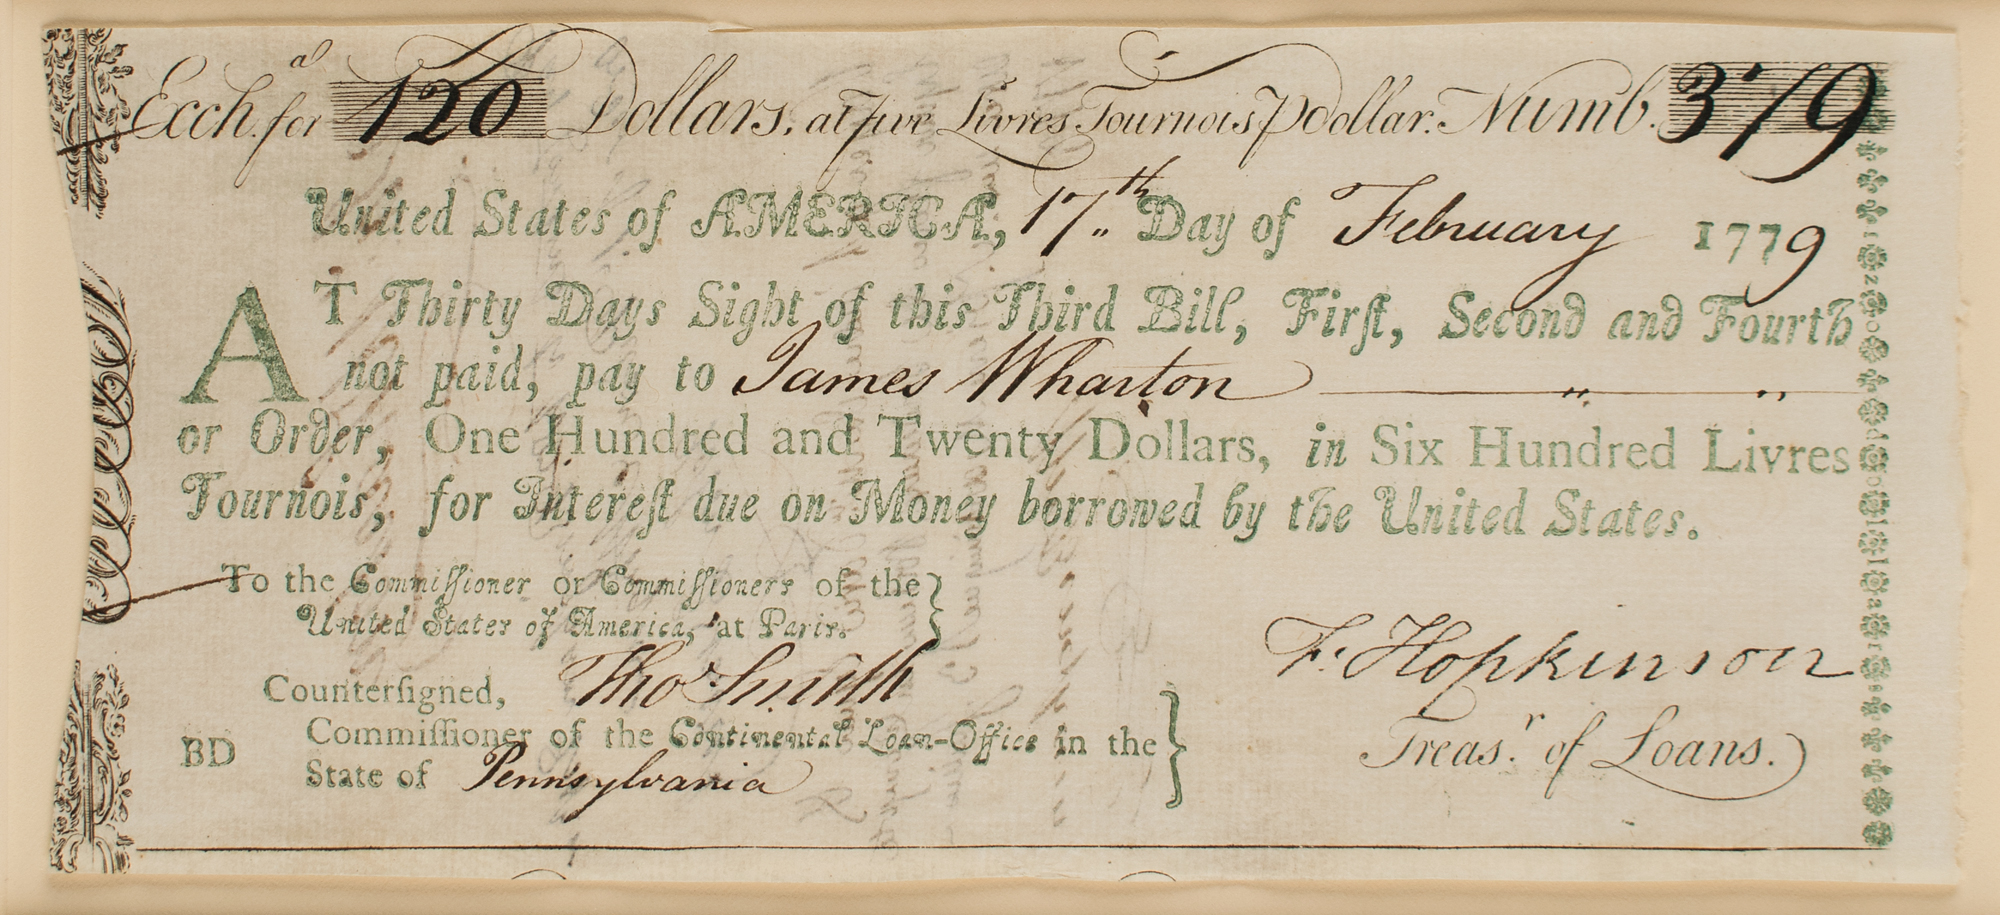 Exch.ᵃ for 120 Dollars, at five Livres Tournois ⅌ dollar. Numb. 379
United States of AMERICA, 17.th Day of February 1779
AT Thirty Days Sight of this Third Bill, Firſt, Second and Fourth
not paid, pay to James Wharton
or Order, One Hundred and Twenty Dollars, in Six Hundred Livres
Tournois, for Intereſt due on Money borrowed by the United States.
To the Commiſſioner or Commiſſioners of the
United States of America, at Paris.
F. Hopkinson
Counterſigned, Thoˢ Smith
Treas.ʳ of Loans.
Commiſſioner of the Continental Loan-Office in the
BD
State of Pennsylvania
120 dollars